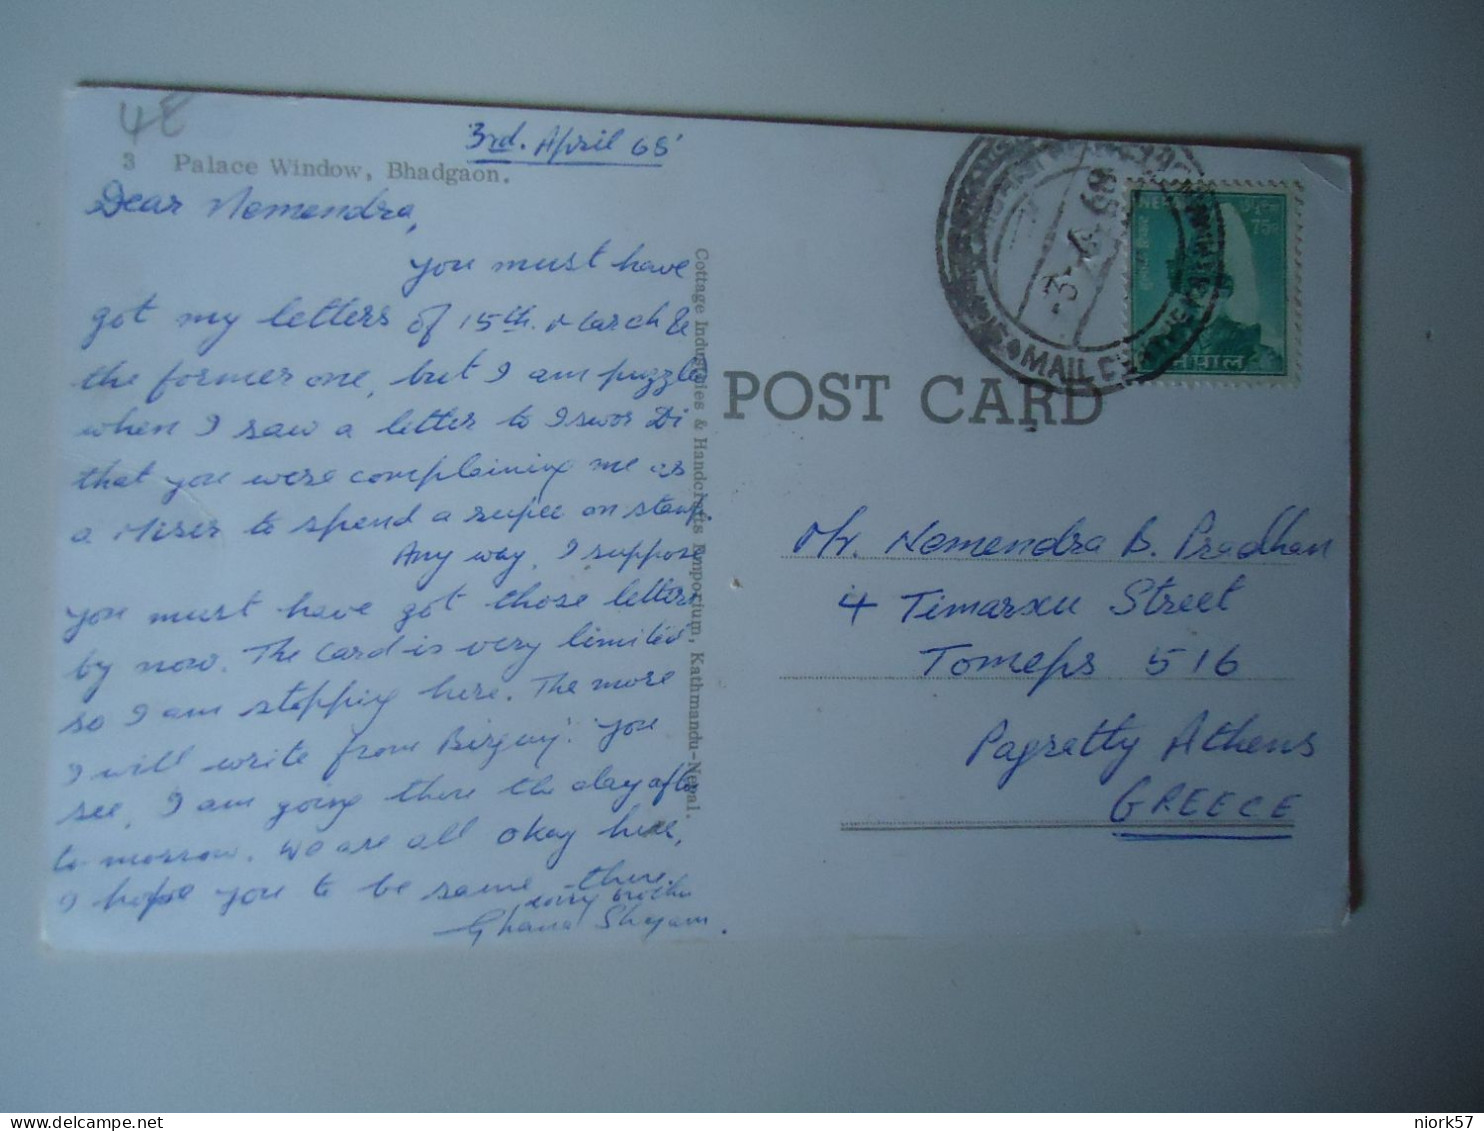 4E
3rd. April 68'
3 Palace Window, Bhadgaon.
Dear Nemendra,
you must have
got my letters of 15th. March &
the former one, but I am puzzle
when I saw a letter to Iswor Di
that you were complaining me as
a miser to spend a rupee on stamp.
Any way, I suppose
you must have got those letters
by now. The card is very limited
so I am stopping here. The more
I will write from Birgunj. You
see, I am going there the day after
to-morrow. We are all okay here,
I hope you to be same there.
brother
Ghana Shyam.
Cottage Industries & Handcrafts Emporium, Kathmandu-Nepal.
POST CARD
-3-4-68
MAIL
NEPAL
75
नेपाल
Mr. Nemendra B. Pradhan
4 Timarxu Street
Tomeps 516
Pagratty Athens
GREECE
niork57